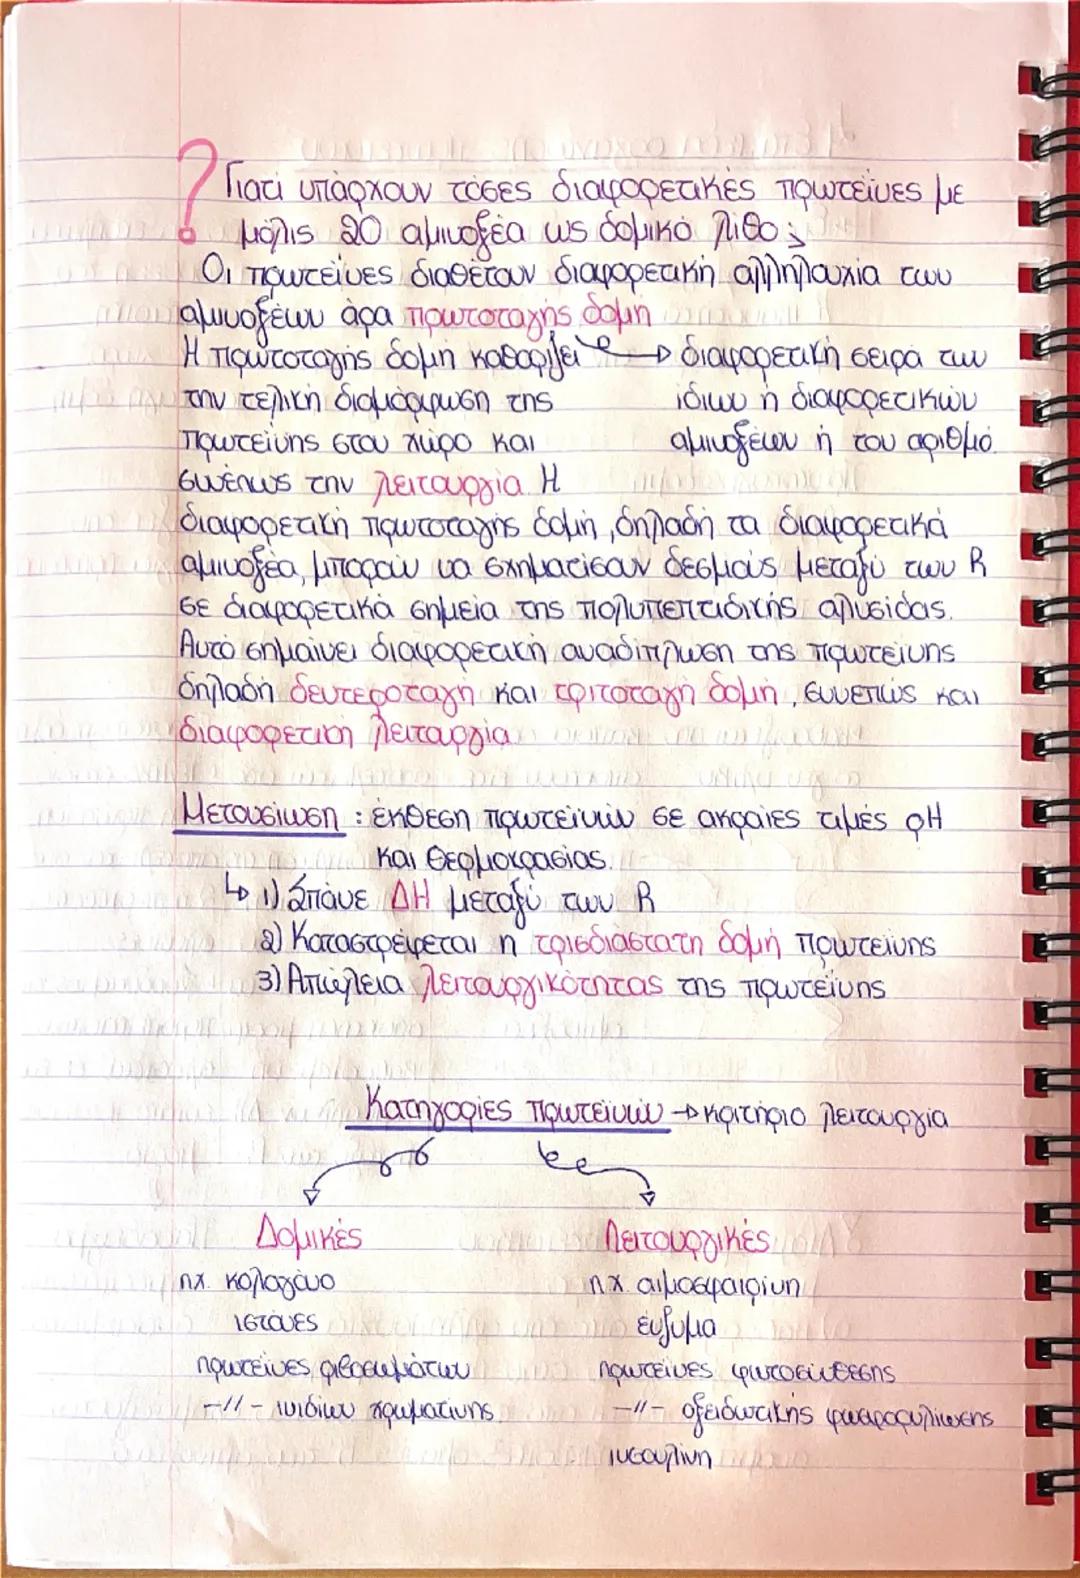 ? Γιατί υπάρχουν τόσες διαφορετικές πρωτεΐνες με
μόλις 20 αμινοξέα ως δομικό λίθο;
Οι πρωτεΐνες διαθέτουν διαφορετική αλληλουχία των
αμινοξέων άρα πρωτοταγής δομή
Η πρωτοταγής δομή καθορίζει → διαφορετική σειρά των
την τελική διαμόρφωση της ίδιων ή διαφορετικών
πρωτεΐνης στον χώρο και αμινοξέων ή του αριθμό.
συνέπως την λειτουργία. Η
διαφορετική πρωτοταγής δομή, δηλαδή τα διαφορετικά
αμινοξέα, μπορούν να σχηματίσουν δεσμούς μεταξύ των R
σε διαφορετικά σημεία της πολυπεπτιδικής αλυσίδας.
Αυτό σημαίνει διαφορετική αναδίπλωση της πρωτεΐνης
δηλαδή δευτεροταγή και τριτοταγή δομή, συνεπώς και
διαφορετική λειτουργία.
Μετουσίωση : έκθεση πρωτεϊνών σε ακραίες τιμές pH
και θερμοκρασίας.
↳ 1) Σπάνε ΔΗ μεταξύ των R
2) Καταστρέφεται η τρισδιάστατη δομή πρωτεΐνης
3) Απώλεια λειτουργικότητας της πρωτεΐνης
Κατηγορίες πρωτεϊνών → κριτήριο λειτουργία
Δομικές Λειτουργικές
πχ. κολαγόνο πχ. αιμοσφαιρίνη
ιστόνες ένζυμα
πρωτεΐνες ριβοσωμάτων πρωτεΐνες φωτοσύνθεσης
-//- ινιδίων χρωματίνης -//- οξειδωτικής φωσφορυλίωσης
ινσουλίνη